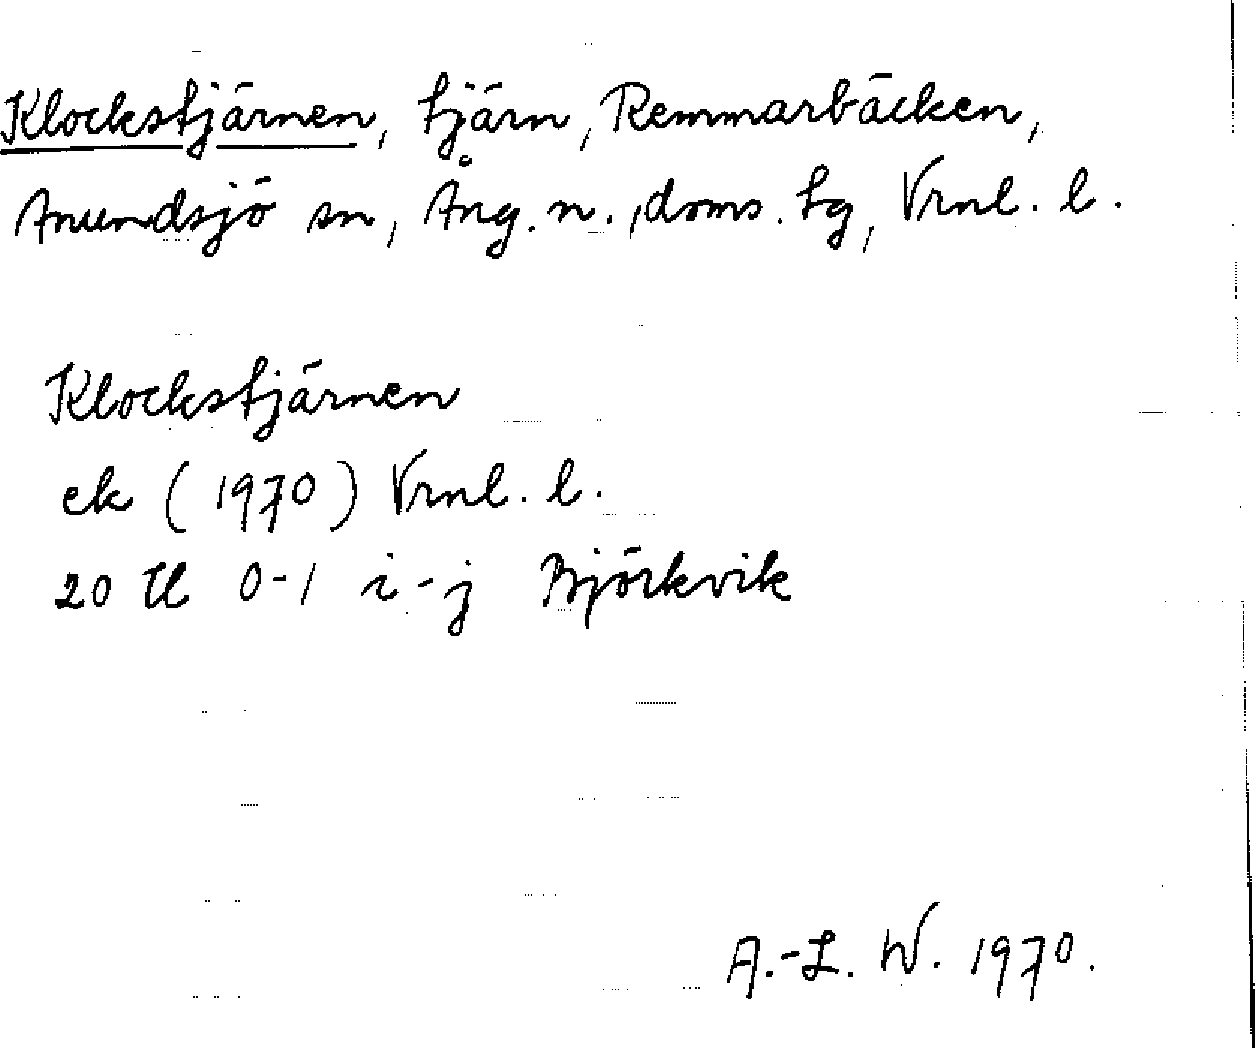 Klockstjärnen, tjärn, Remmarbäcken,
Anundsjö sn, Ång. n., doms. tg, Vrnl. l.
Klockstjärnen
ek (1970) Vrnl. l.
20 H 0-1 i-j Björkvik
A.-L. W. 1970.